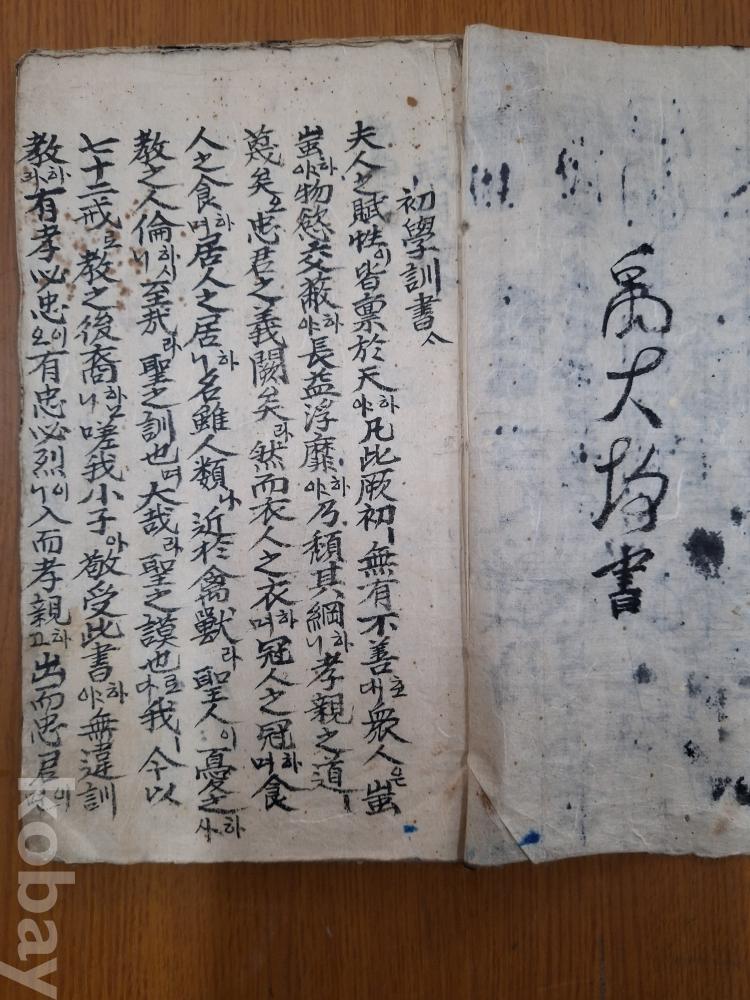 大
書
初學訓書
夫人之賦性이皆稟於天하야凡此厥初ㅣ無有不善호대衆人은蚩
蚩하야物慾交蔽하야長益浮靡하야乃頹其綱하니孝親之道ㅣ
蔑矣오忠君之義闕矣라然而衣人之衣하며冠人之冠하며食
人之食하며居人之居하니名雖人類나近於禽獸라聖人이憂之하사
敎之人倫하시니至哉라聖之訓也며大哉라聖之謨也로다我ㅣ今以
七十二戒로敎之後裔하노니嗟我小子아敬受此書하야無違訓
敎하라有孝必忠이오有忠必烈이니入而孝親하고出而忠君이
kobay